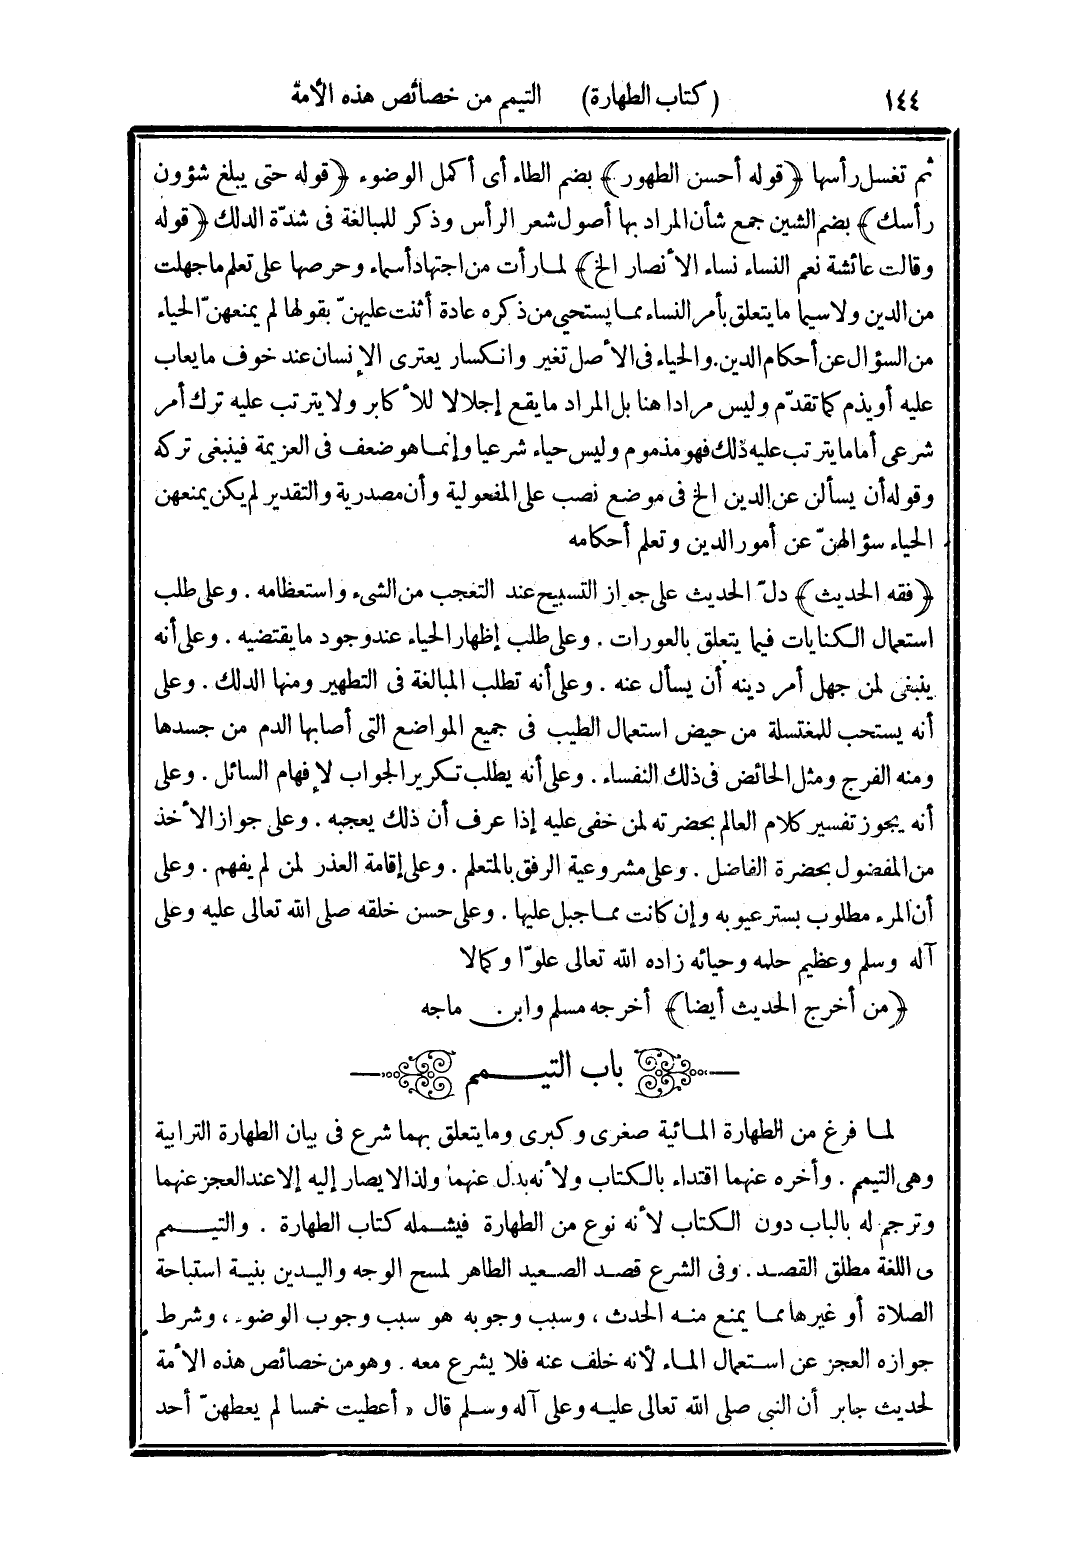 ١٤٤ (كتاب الطهارة) التيمم من خصائص هذه الأمة
ثم تغسل رأسها ﴿قوله أحسن الطهور﴾ بضم الطاء أى أكمل الوضوء ﴿قوله حتى يبلغ شؤون
رأسك﴾ بضم الشين جمع شأن المراد بها أصول شعر الرأس وذكر للمبالغة فى شدّة الدلك ﴿قوله
وقالت عائشة نعم النساء نساء الأنصار الخ﴾ لما رأت من اجتهاد أسماء وحرصها على تعلم ما جهلت
من الدين ولا سيما ما يتعلق بأمر النساء مما يستحيى من ذكره عادة أثنت عليهنّ بقولها لم يمنعهنّ الحياء
من السؤال عن أحكام الدين. والحياء فى الأصل تغير وانكسار يعترى الإنسان عند خوف ما يعاب
عليه أو يذم كما تقدّم وليس مرادا هنا بل المراد ما يقع إجلالا للأكابر ولا يترتب عليه ترك أمر
شرعى أما ما يترتب عليه ذلك فهو مذموم وليس حياء شرعيا وإنما هو ضعف فى العزيمة فينبغى تركه
وقوله أن يسألن عن الدين الخ فى موضع نصب على المفعولية وأن مصدرية والتقدير لم يكن يمنعهن
الحياء سؤالهنّ عن أمور الدين وتعلم أحكامه
﴿فقه الحديث﴾ دلّ الحديث على جواز التسبيح عند التعجب من الشىء واستعظامه . وعلى طلب
استعمال الكنايات فيما يتعلق بالعورات . وعلى طلب إظهار الحياء عند وجود ما يقتضيه . وعلى أنه
ينبغى لمن جهل أمر دينه أن يسأل عنه . وعلى أنه تطلب المبالغة فى التطهير ومنها الدلك . وعلى
أنه يستحب للمغتسلة من حيض استعمال الطيب فى جميع المواضع التى أصابها الدم من جسدها
ومنه الفرج ومثل الحائض فى ذلك النفساء . وعلى أنه يطلب تكرير الجواب لإفهام السائل . وعلى
أنه يجوز تفسير كلام العالم بحضرته لمن خفى عليه إذا عرف أن ذلك يعجبه . وعلى جواز الأخذ
من المفضول بحضرة الفاضل . وعلى مشروعية الرفق بالمتعلم . وعلى إقامة العذر لمن لم يفهم . وعلى
أن المرء مطلوب بستر عيوبه وإن كانت مما جبل عليها . وعلى حسن خلقه صلى الله تعالى عليه وعلى
آله وسلم وعظيم حلمه وحيائه زاده الله تعالى علوّا وكمالا
﴿من أخرج الحديث أيضا﴾ أخرجه مسلم وابن ماجه
باب التيمم
لما فرغ من الطهارة المائية صغرى وكبرى وما يتعلق بهما شرع فى بيان الطهارة الترابية
وهى التيمم . وأخره عنهما اقتداء بالكتاب ولأنه بدل عنهما ولذا لا يصار إليه إلا عند العجز عنهما
وترجم له بالباب دون الكتاب لأنه نوع من الطهارة فيشمله كتاب الطهارة . والتيمم
ى اللغة مطلق القصد . وفى الشرع قصد الصعيد الطاهر لمسح الوجه واليدين بنية استباحة
الصلاة أو غيرها مما يمنع منه الحدث ، وسبب وجوبه هو سبب وجوب الوضوء ، وشرط
جوازه العجز عن استعمال الماء لأنه خلف عنه فلا يشرع معه . وهو من خصائص هذه الأمة
لحديث جابر أن النبى صلى الله تعالى عليه وعلى آله وسلم قال « أعطيت خمسا لم يعطهنّ أحد